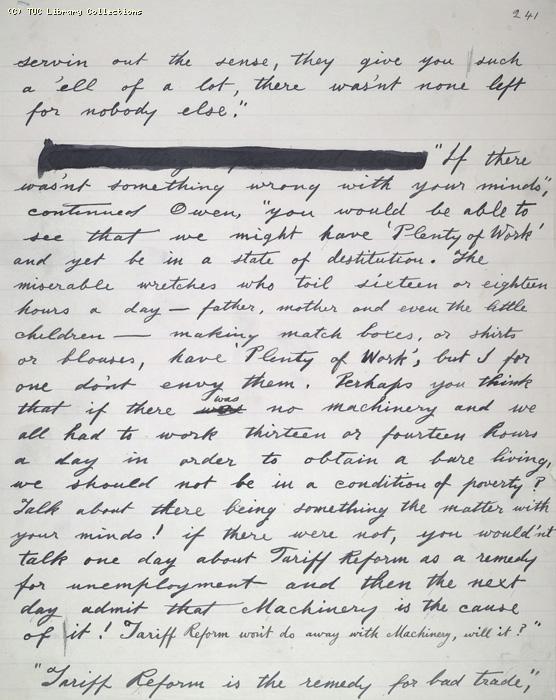 (C) TUC Library Collections
241
servin out the sense, they give you such
a 'ell of a lot, there was'nt none left
for nobody else."
"If there
was'nt something wrong with your minds",
continued Owen, "you would be able to
see that we might have 'Plenty of Work'
and yet be in a state of destitution. The
miserable wretches who toil sixteen or eighteen
hours a day — father, mother and even the little
children — making match boxes, or shirts
or blouses, have 'Plenty of Work', but I for
one don't envy them. Perhaps you think
that if there was no machinery and we
all had to work thirteen or fourteen hours
a day in order to obtain a bare living,
we should not be in a condition of poverty?
Talk about there being something the matter with
your minds! if there were not, you would'nt
talk one day about Tariff Reform as a remedy
for unemployment and then the next
day admit that Machinery is the cause
of it! Tariff Reform wont do away with Machinery, will it?"
"Tariff Reform is the remedy for bad trade",